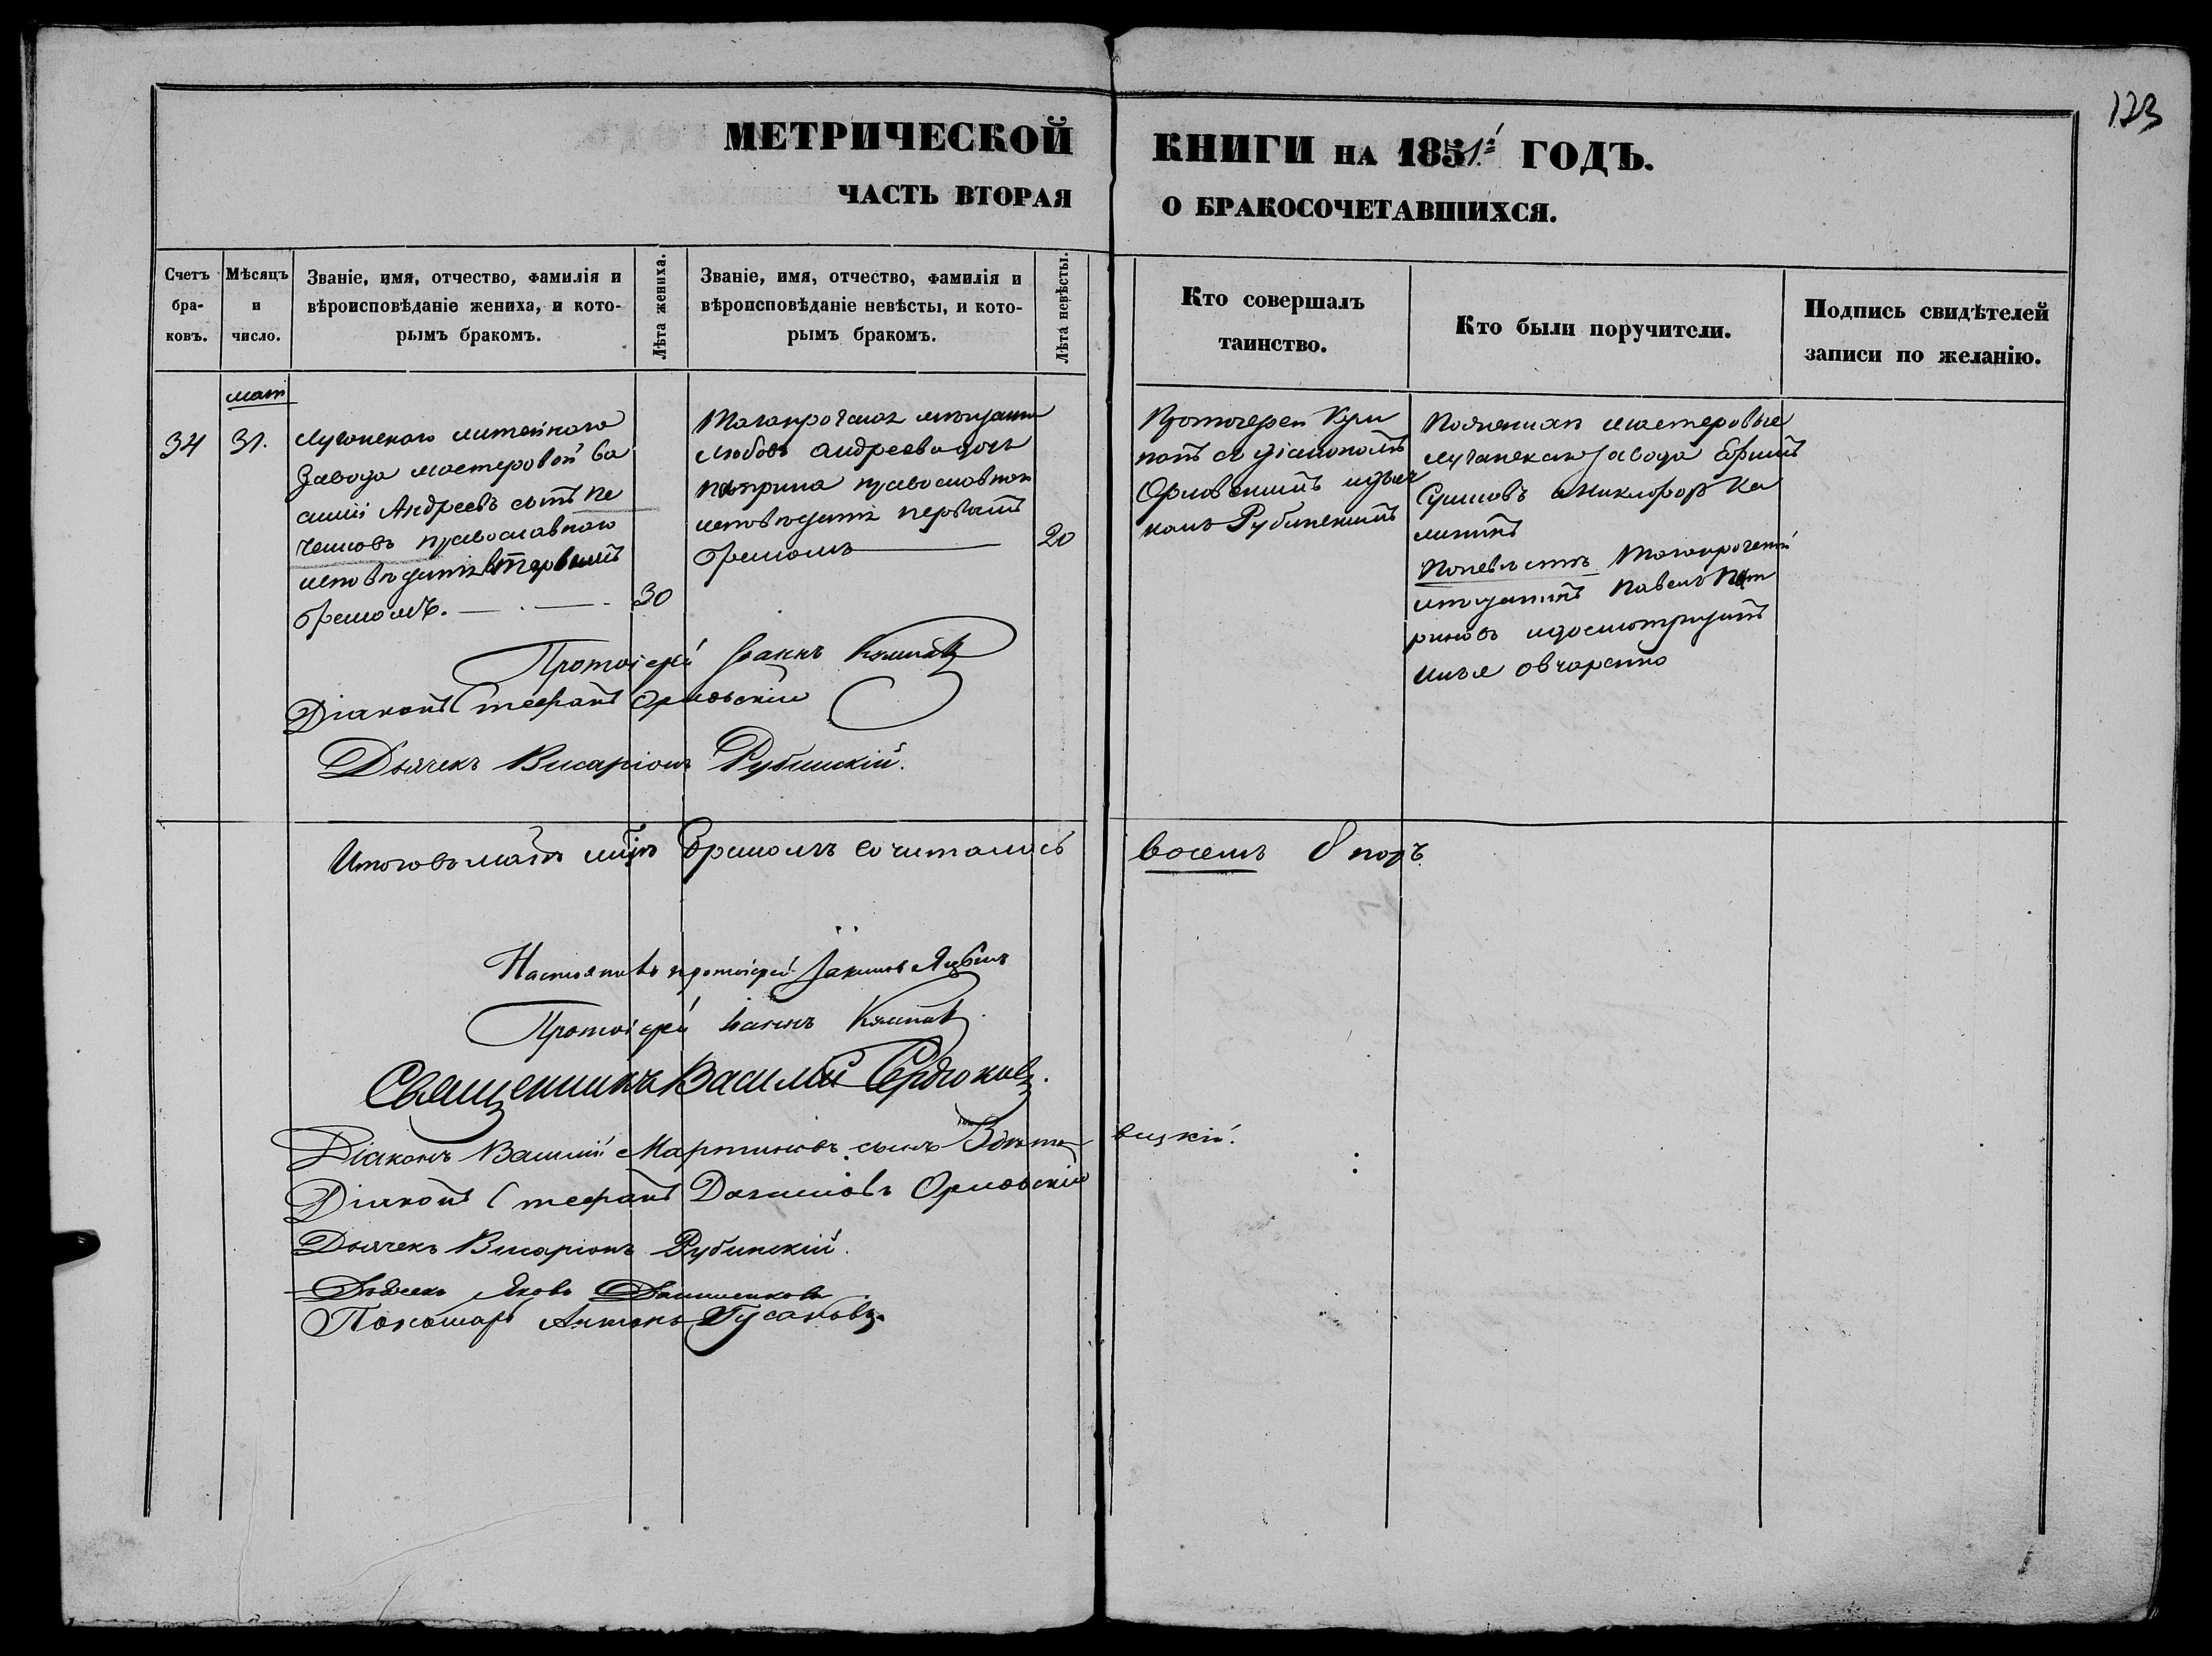 123
МЕТРИЧЕСКОЙ КНИГИ НА 1851й ГОДЪ.
ЧАСТЬ ВТОРАЯ О БРАКОСОЧЕТАВШИХСЯ.
Счетъ бра-ковъ.
Мѣсяцъ и число.
Званіе, имя, отчество, фамилія и
вѣроисповѣданіе жениха, и кото-
рымъ бракомъ.
Лѣта жениха.
Званіе, имя, отчество, фамилія и
вѣроисповѣданіе невѣсты, и кото-
рымъ бракомъ.
Лѣта невѣсты.
Кто совершалъ
таинство.
Кто были поручители.
Подпись свидѣтелей
записи по желанію.
маія
34
31.
Луганскаго литейнаго
завода мастеровой Ва
силій Андреевъ сынъ Пе
ченовъ православнаго
исповѣданія вторымъ
бракомъ.
30
Таганрогская мѣщанка
Любовь Андреева дочь
православнаго
исповѣданія первымъ
бракомъ
20
Протоіерей
съ діакономъ
Орловскимъ и дьяч
комъ Рубинскимъ
По женихѣ мастеровые
Луганскаго завода Ефимъ
Сушковъ и Никифоръ Ка
лининъ
По невѣстѣ Таганрогскій
мѣщанинъ Павелъ
риновъ и досмотрщикъ
Илья Овчаренко
Протоіерей Іоаннъ
Діаконъ Стефанъ Орловскій
Дьячекъ Висаріонъ Рубинскій.
Итого въ маѣ мцѣ бракомъ сочиталось восемь 8 паръ.
протоіерей
Протоіерей Іоаннъ
Священникъ Василій Сердюковъ.
Діаконъ Василій Мартиновъ сынъ
вицкій.
Діаконъ Стефанъ Даниловъ Орловскій
Дьячекъ Висаріонъ Рубинскій.
Дьячекъ Яковъ Даниленковъ
Пономарь Антонъ Гусаковъ.